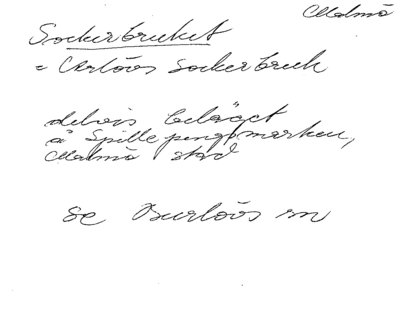 Malmö
Sockerbruket
= Arlövs sockerbruk
delvis beläget
å Spillepengsmarken,
Malmö stad
se Burlövs sn